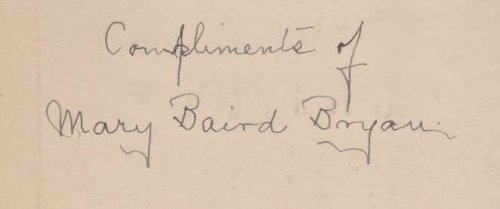 Compliments of
Mary Baird Bryan.